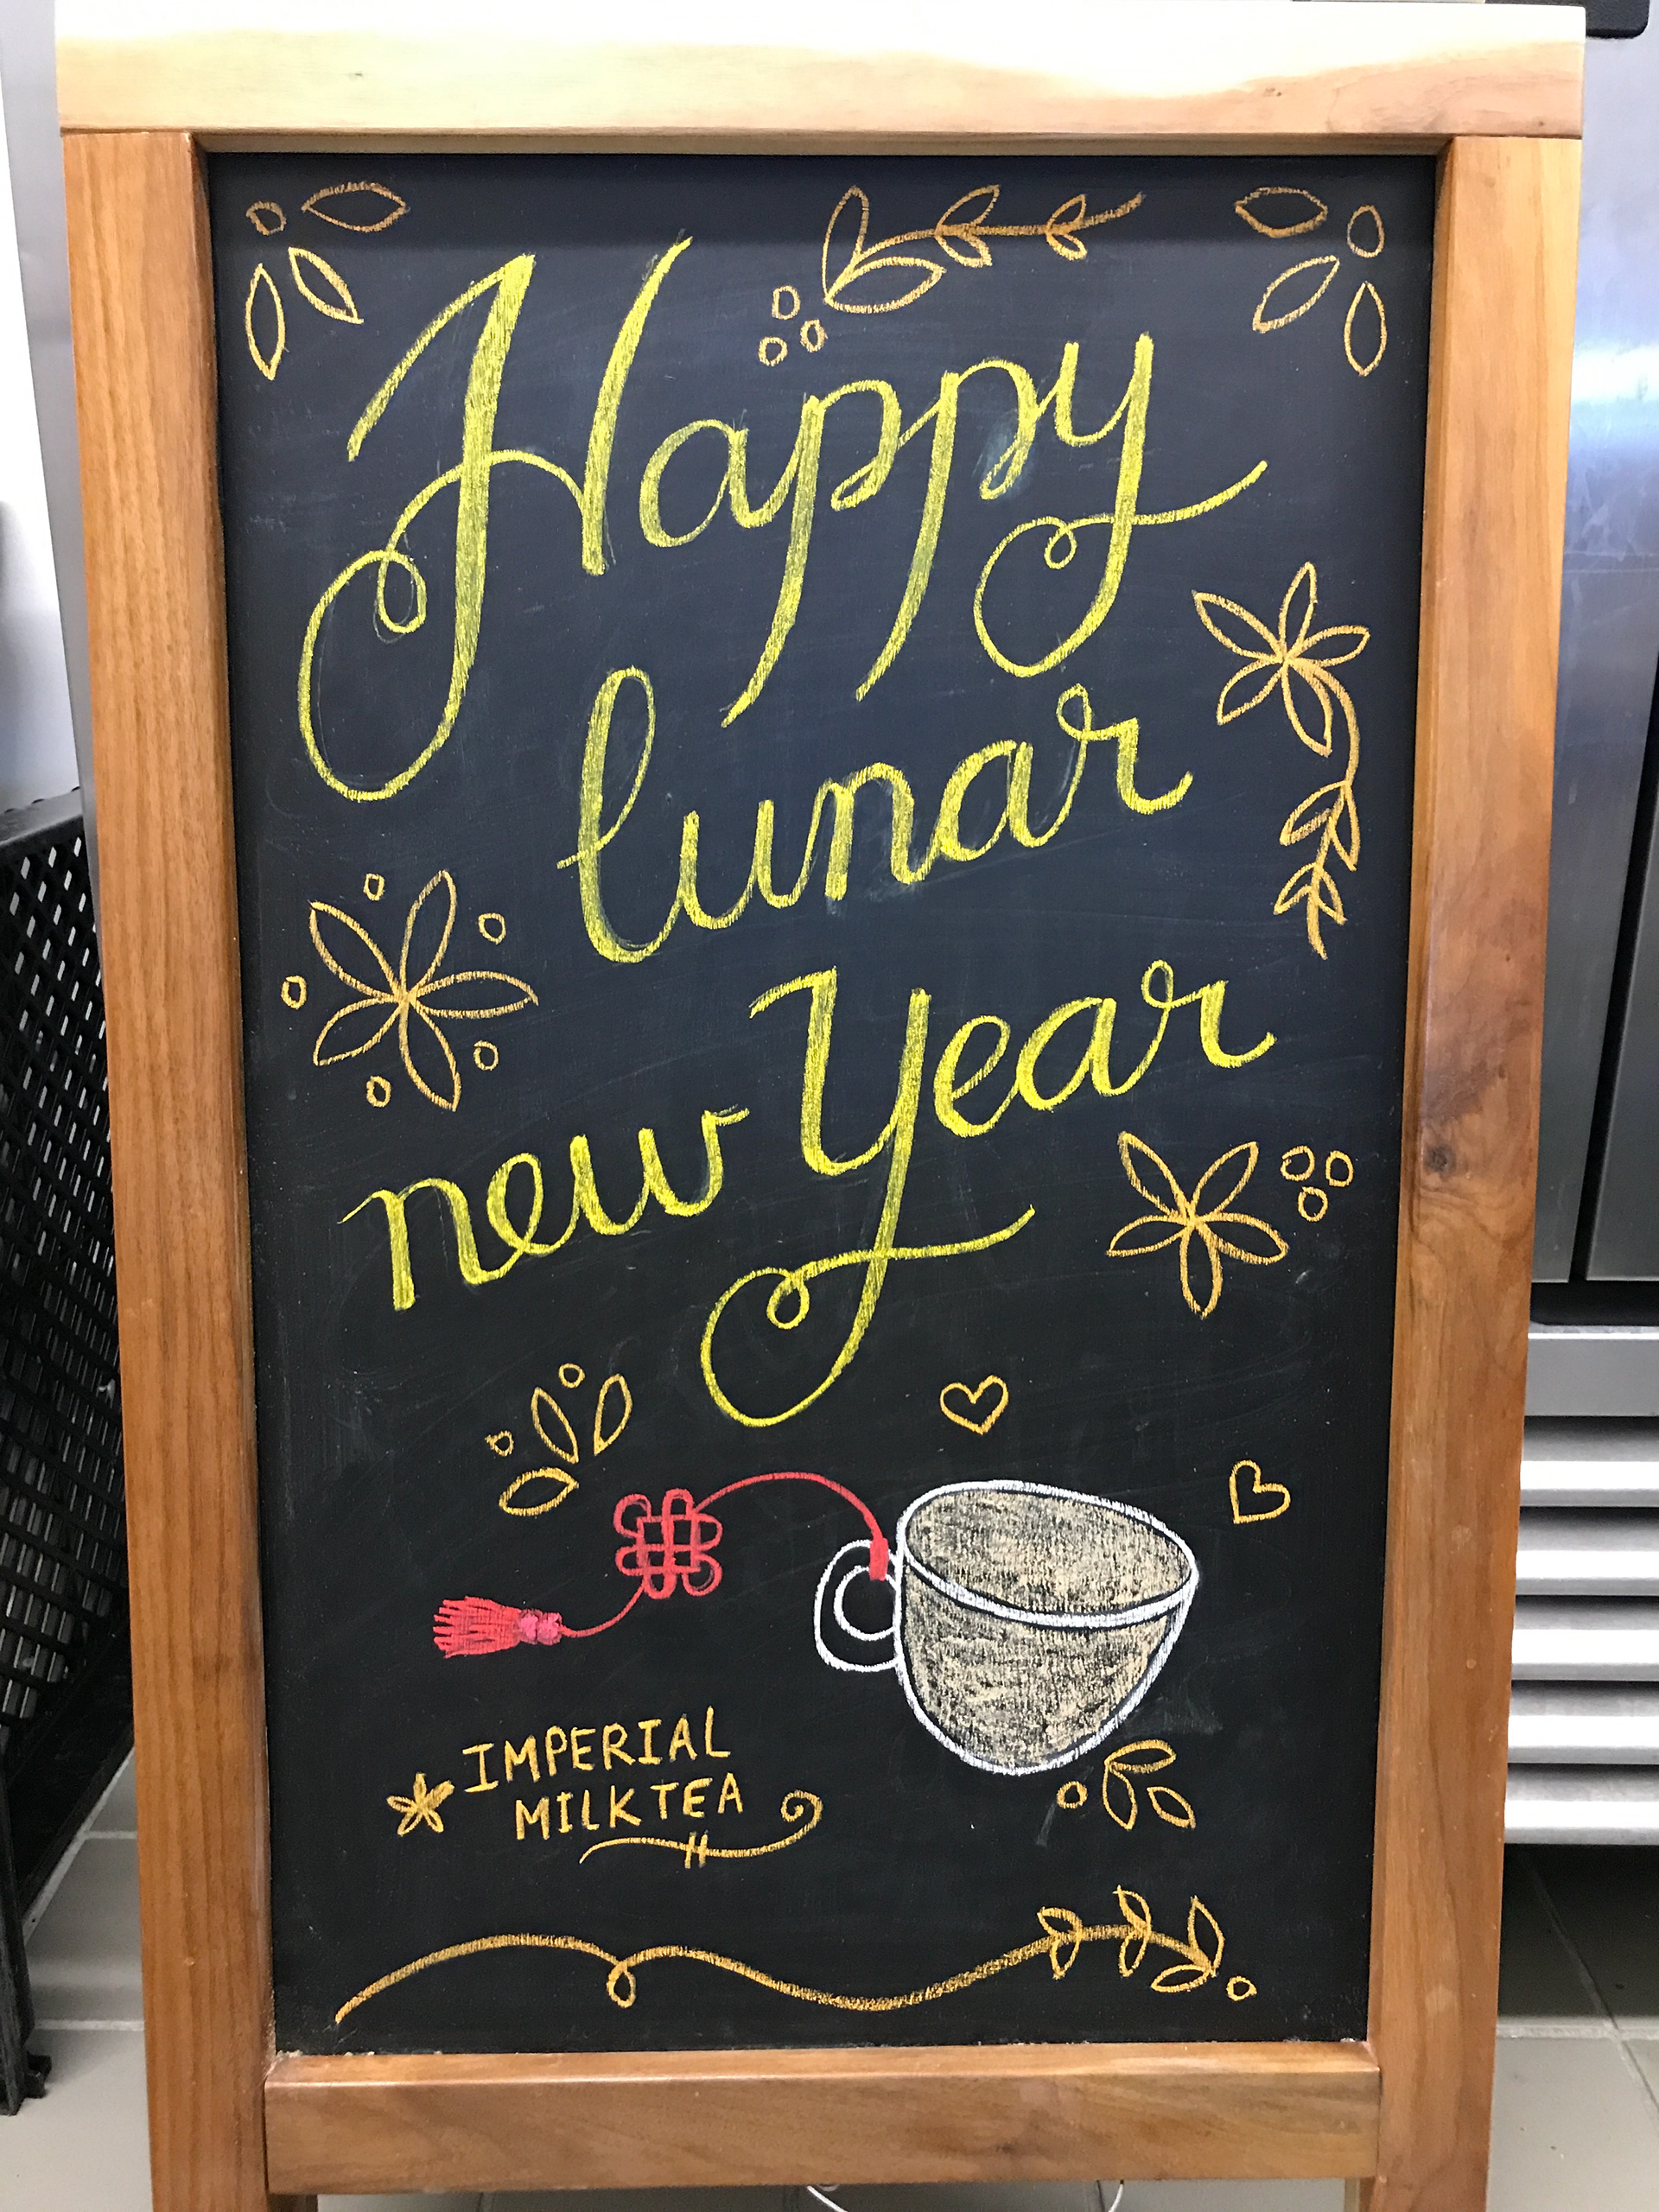 Happy
lunar
new Year
IMPERIAL
MILKTEA